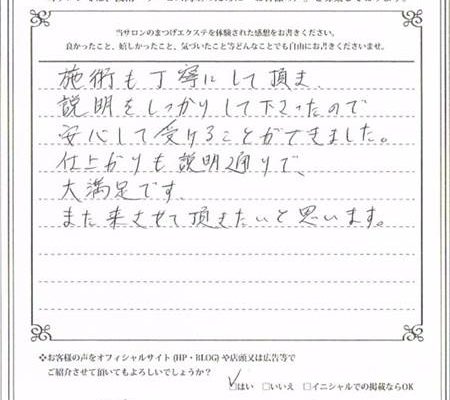 当サロンのまつげエクステを体験された感想をお書きください。
良かったこと、嬉しかったこと、気づいたことなどどんなことでも自由にお書きくださいませ。
施術も丁寧にして頂き、
説明をしっかりして下さったので
安心して受けることができました。
仕上がりも説明通りで、
大満足です。
また来させて頂きたいと思います。
❖お客様の声をオフィシャルサイト(HP・BLOG)や店頭又は広告等で
ご紹介させて頂いてもよろしいでしょうか?
☑はい □いいえ □イニシャルでの掲載ならOK